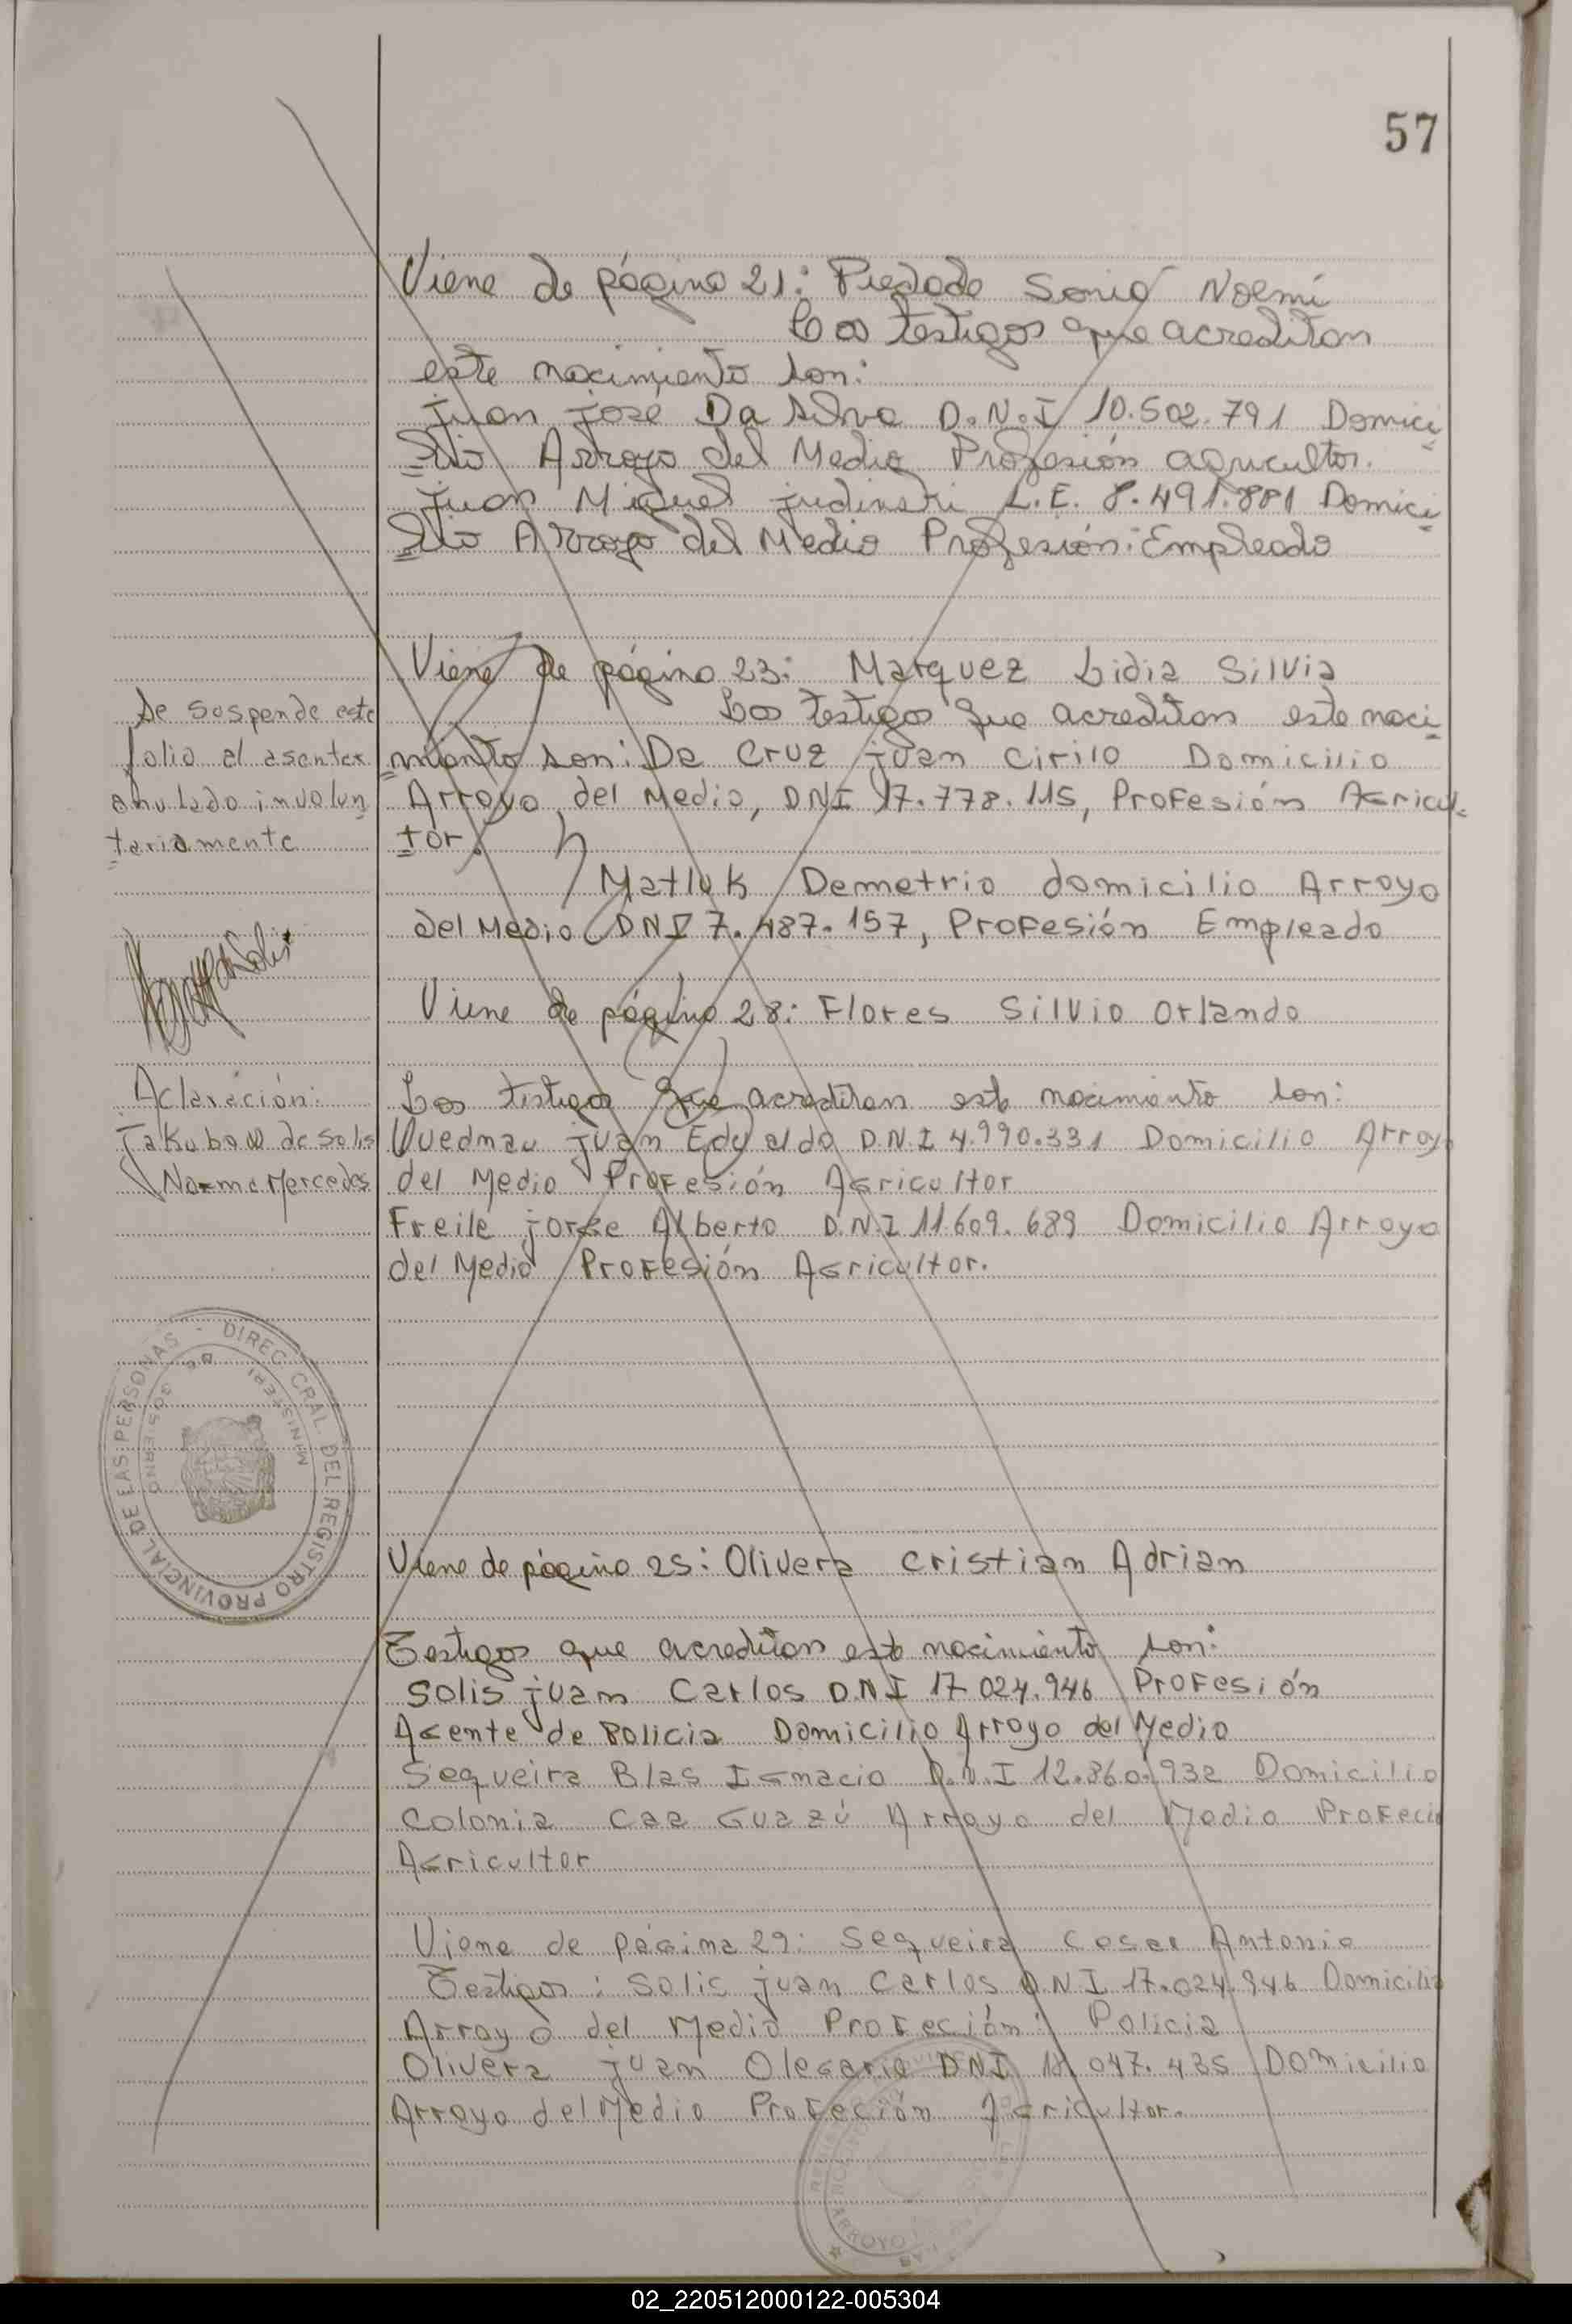 57
Viene de página 21: Piedade Sonia Noemí
Los testigos que acreditan
este nacimiento son:
Juan José Da Silva D.N.I 10.502.791 Domici
lio Arroyo del Medio Profesión agricultor.
Juan Miguel Judinski L.E. 8.491.881 Domici
lio Arroyo del Medio Profesión: Empleado
Viene de página 23: Marquez Lidia Silvia
Los testigos que acreditan este naci
miento son: Da Cruz Juan Cirilo Domicilio
Arroyo del Medio, DNI 17.778.115, Profesión Agricul
tor.
Matluk Demetrio domicilio Arroyo
del Medio DNI 7.487.157, Profesión Empleado
Viene de página 28: Flores Silvio Orlando
Los testigos que acreditan este nacimiento son:
Juan D.N.I 4.990.331 Domicilio Arroyo
del Medio Profesión Agricultor
Freile Jorge Alberto D.N.I 11.609.689 Domicilio Arroyo
del Medio Profesión Agricultor.
Viene de página 25: Olivera Cristian Adrian
Testigos que acreditan este nacimiento son:
Solis Juan Carlos DNI 17.024.946 Profesión
Agente de Policia Domicilio Arroyo del Medio
Sequeira Blas Ignacio D.N.I 12.860.932 Domicilio
Colonia Caa Guazú Arroyo del Medio Profeció
Agricultor
Viene de página 29: Sequeira Cesar Antonio
Testigos: Solis Juan Carlos D.N.I 17.024.946 Domicilio
Arroyo del Medio Profeción: Policia
Olivera Juan Olegario DNI 18.047.435 Domicilio
Arroyo del Medio Profeción Agricultor.
Se suspende este
folio al asentar
anulado involun
tariamente
Aclaración:
Jakubow de Solis
Norma Mercedes
DIREC. GRAL. DEL REGISTRO PROVINCIAL DE LAS PERSONAS -
MINISTERI DE GOBIERNO
02_220512000122-005304